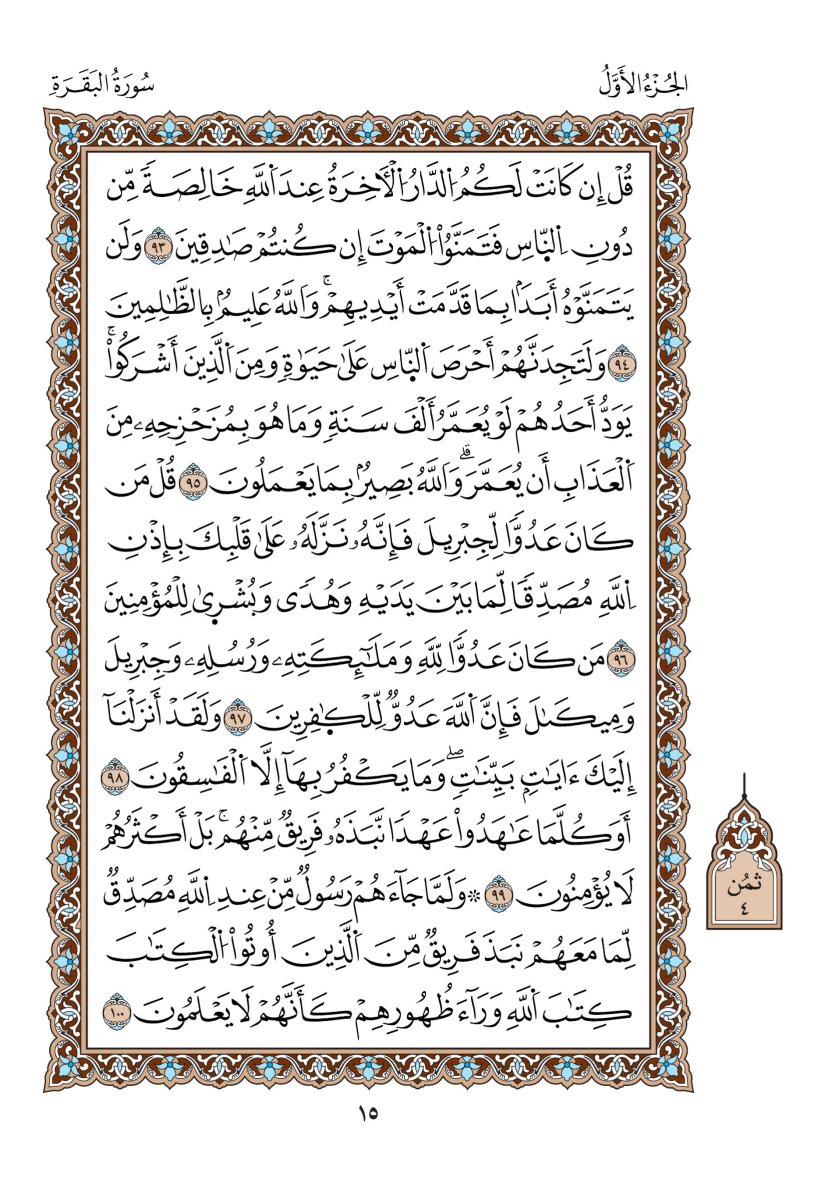 الجُزْءُ الأَوَّلُ
سُورَةُ البَقَرَةِ
قُلْ إِن كَانَتْ لَكُمُ اُ۬لدَّارُ اُ۬لْأَخِرَةُ عِندَ اَ۬للَّهِ خَالِصَةٗ مِّن
دُونِ اِ۬لنَّاسِ فَتَمَنَّوُاْ اُ۬لْمَوْتَ إِن كُنتُمْ صَٰدِقِينَ ٩٣ وَلَن
يَتَمَنَّوْهُ أَبَدَۢا بِمَا قَدَّمَتْ أَيْدِيهِمْۚ وَاَللَّهُ عَلِيمُۢ بِالظَّٰلِمِينَ
٩٤ وَلَتَجِدَنَّهُمْ أَحْرَصَ اَ۬لنَّاسِ عَلَىٰ حَيَوٰةٖ وَمِنَ اَ۬لَّذِينَ أَشْرَكُواْۚ
يَوَدُّ أَحَدُهُمْ لَوْ يُعَمَّرُ أَلْفَ سَنَةٖ وَمَا هُوَ بِمُزَحْزِحِهِۦ مِنَ
اَ۬لْعَذَابِ أَن يُعَمَّرَۗ وَاَللَّهُ بَصِيرُۢ بِمَا يَعْمَلُونَ ٩٥ قُلْ مَن
كَانَ عَدُوّٗا لِّجِبْرِيلَ فَإِنَّهُۥ نَزَّلَهُۥ عَلَىٰ قَلْبِكَ بِإِذْنِ
اِ۬للَّهِ مُصَدِّقٗا لِّمَا بَيْنَ يَدَيْهِ وَهُدٗى وَبُشْرىٰ لِلْمُؤْمِنِينَ
٩٦ مَن كَانَ عَدُوّٗا لِّلهِ وَمَلَٰٓئِكَتِهِۦ وَرُسُلِهِۦ وَجِبْرِيلَ
وَمِيكَىٰلَ فَإِنَّ اَ۬للَّهَ عَدُوّٞ لِّلْكٰ۪فِرِينَ ٩٧ وَلَقَدْ أَنزَلْنَآ
إِلَيْكَ ءَايَٰتِۢ بَيِّنَٰتٖۖ وَمَا يَكْفُرُ بِهَآ إِلَّا اَ۬لْفَٰسِقُونَ ٩٨
أَوَكُلَّمَا عَٰهَدُواْ عَهْدٗا نَّبَذَهُۥ فَرِيقٞ مِّنْهُمۚ بَلْ أَكْثَرُهُمْ
لَا يُؤْمِنُونَ ٩٩ ۞ وَلَمَّا جَآءَهُمْ رَسُولٞ مِّنْ عِندِ اِ۬للَّهِ مُصَدِّقٞ
لِّمَا مَعَهُمْ نَبَذَ فَرِيقٞ مِّنَ اَ۬لَّذِينَ أُوتُواْ اُ۬لْكِتَٰبَ
كِتَٰبَ اَ۬للَّهِ وَرَآءَ ظُهُورِهِمْ كَأَنَّهُمْ لَا يَعْلَمُونَ ١٠٠
ثُمُن
٤
١٥